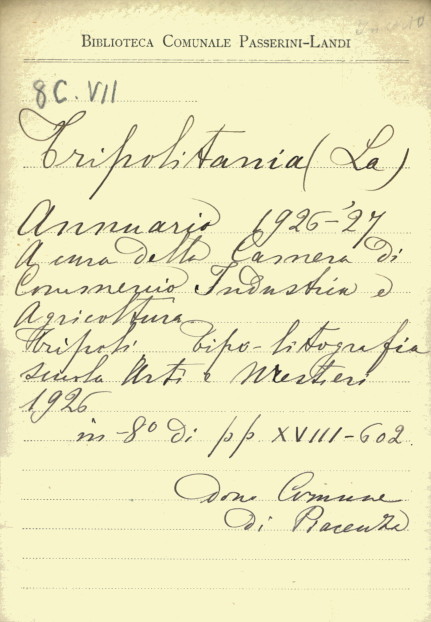 BIBLIOTECA COMUNALE PASSERINI-LANDI
8C.VII
Tripolitania (La)
Annuario 1926-'27
A cura della Camera di
Commercio Industria e
Agricoltura
Tripoli Tipo-litografia
scuola Arti e Mestieri
1926
in-8º di pp XVIII-602.
dono Comune
di Piacenza